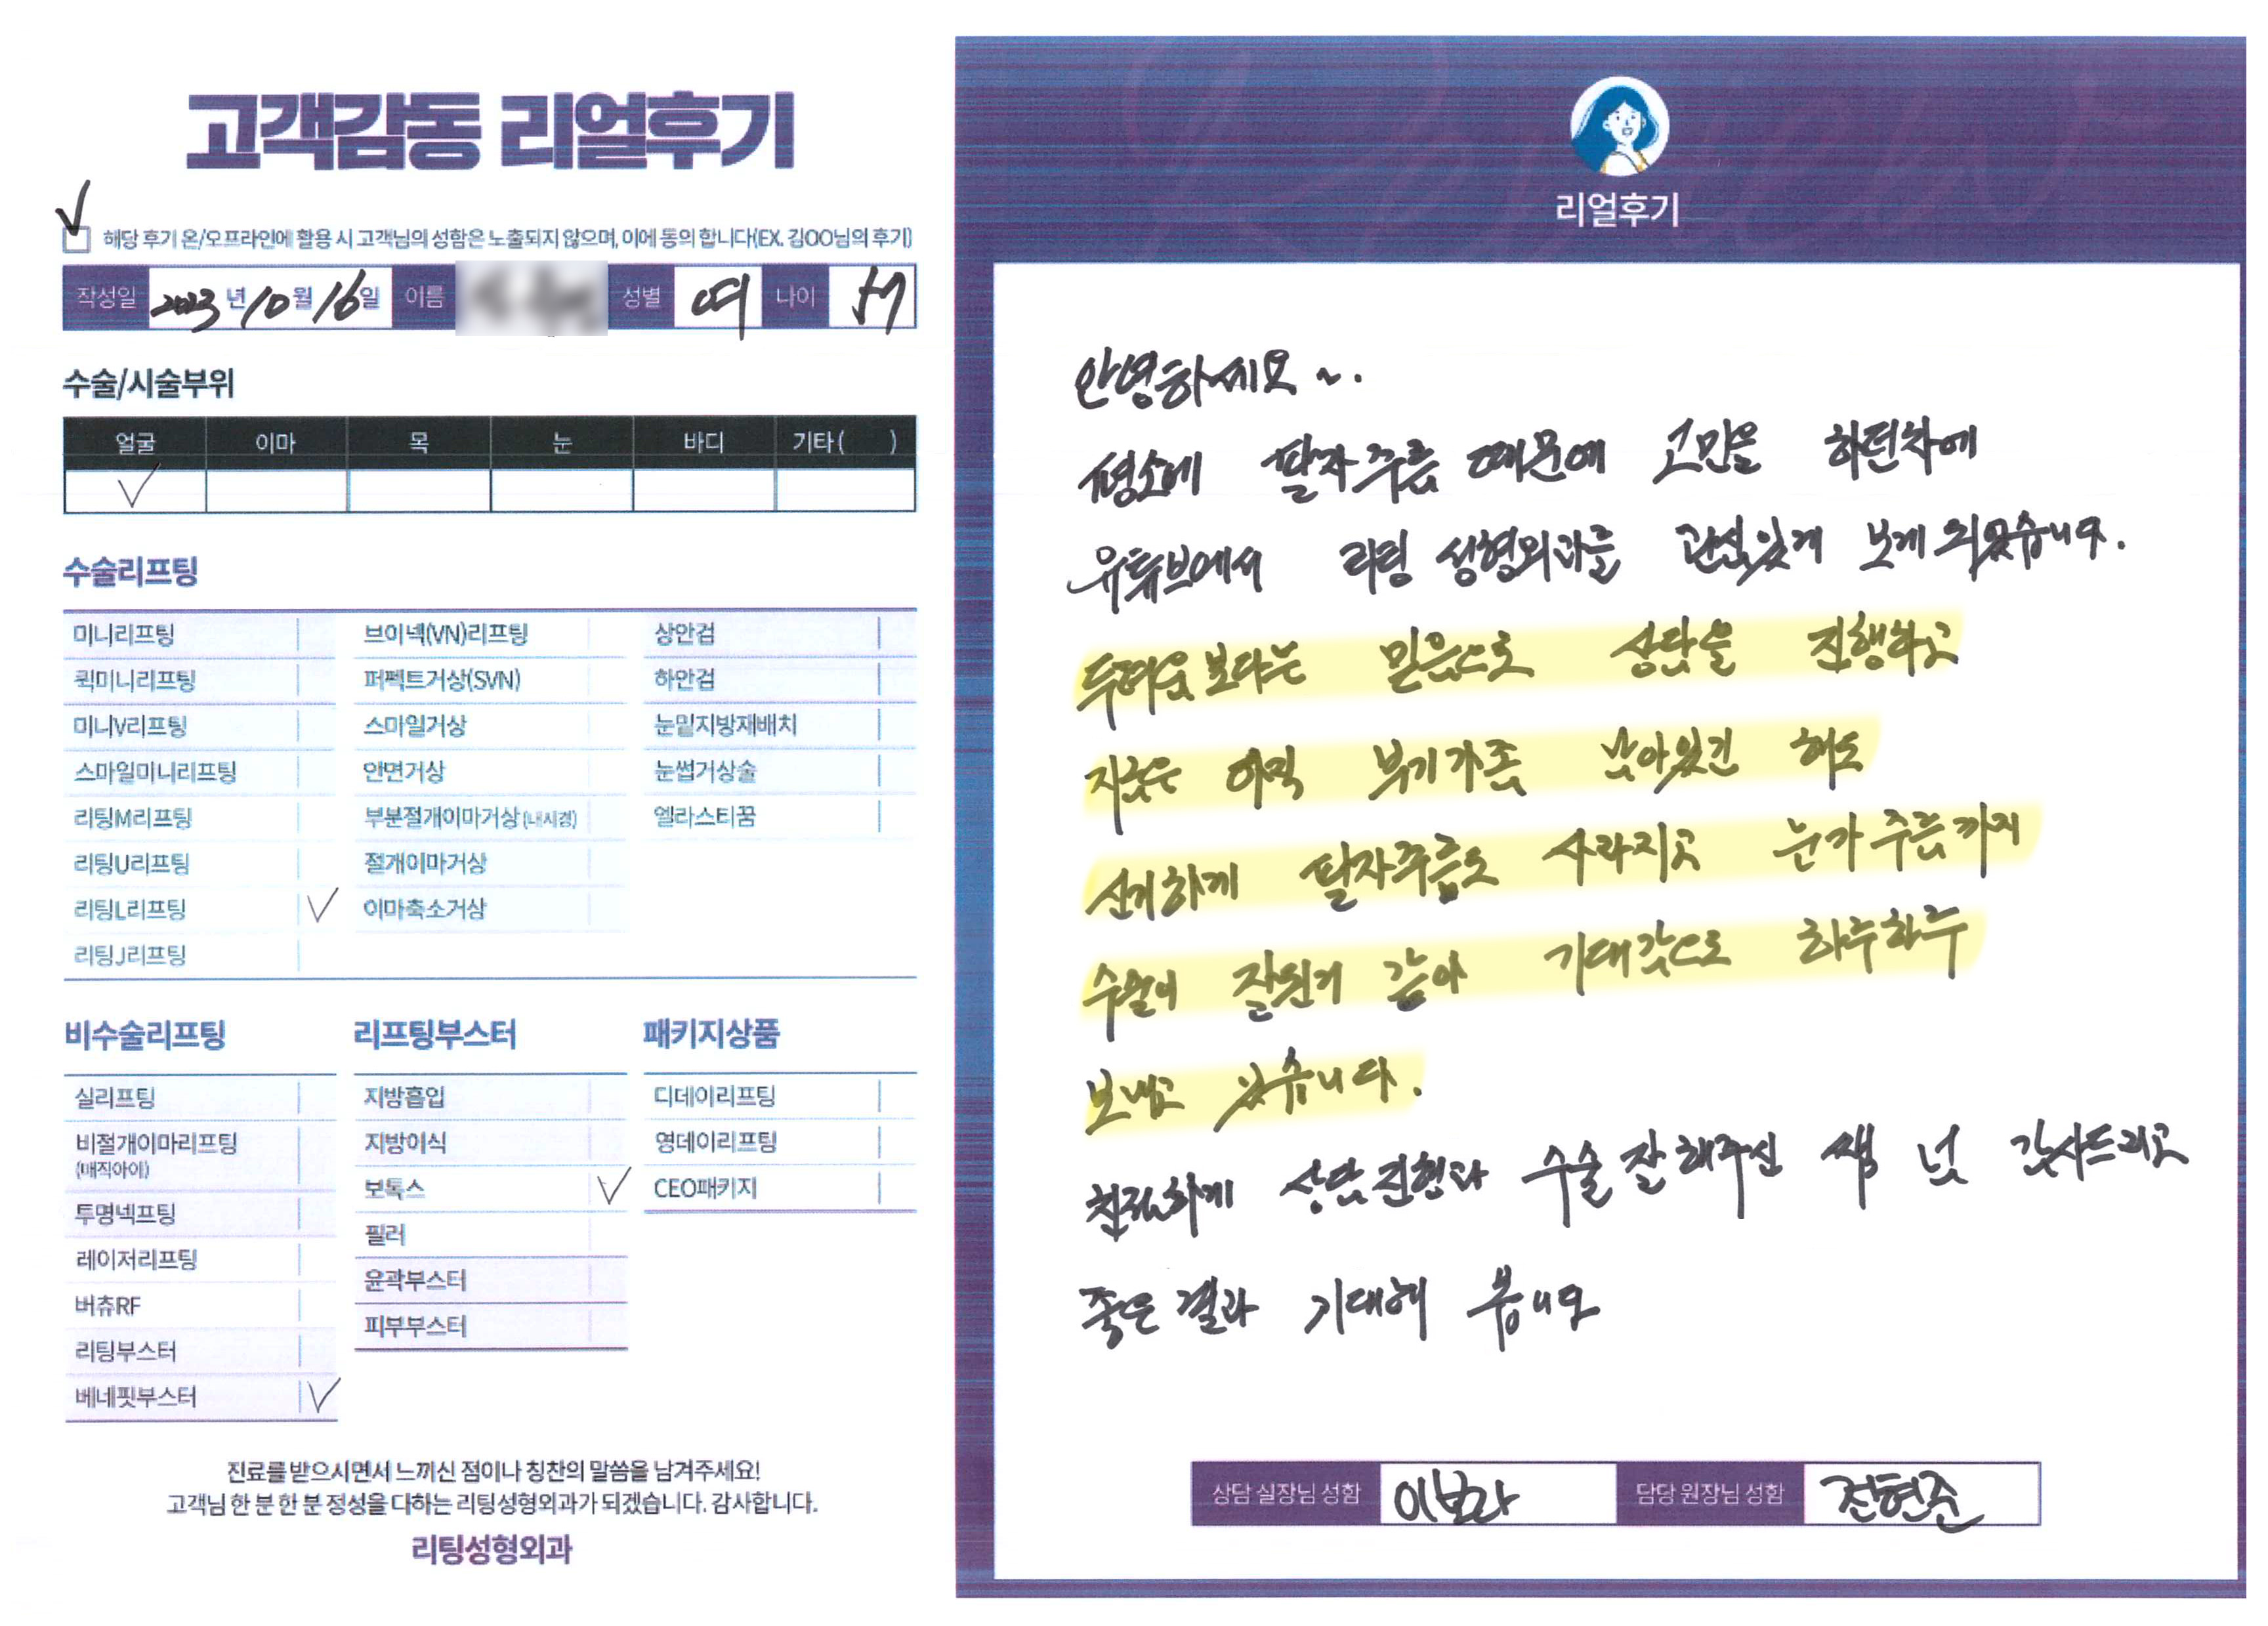 고객감동 리얼후기
해당 후기 온/오프라인에 활용 시 고객님의 성함은 노출되지 않으며, 이에 동의 합니다(EX. 김OO님의 후기)
작성일 2023 년 10 월 16 일 이름 성별 여 나이
수술/시술부위
얼굴 이마 목 눈 바디 기타 ( )
수술리프팅
미니리프팅 브이넥(VN)리프팅 상안검
퀵미니리프팅 퍼펙트거상(SVN) 하안검
미니V리프팅 스마일거상 눈밑지방재배치
스마일미니리프팅 안면거상 눈썹거상술
리팅M리프팅 부분절개이마거상 (내시경) 엘라스티꿈
리팅U리프팅 절개이마거상
리팅L리프팅 이마축소거상
리팅J리프팅
비수술리프팅
실리프팅
비절개이마리프팅
(매직아이)
투명넥프팅
레이저리프팅
버츄RF
리팅부스터
베네핏부스터
리프팅부스터
지방흡입
지방이식
보톡스
필러
윤곽부스터
피부부스터
패키지상품
디데이리프팅
영데이리프팅
CEO패키지
진료를 받으시면서 느끼신 점이나 칭찬의 말씀을 남겨주세요!
고객님 한 분 한 분 정성을 다하는 리팅성형외과가 되겠습니다. 감사합니다.
리팅성형외과
리얼후기
안녕하세요 ~.
평소에 팔자주름 때문에 고민을 하던차에
유튜브에서 리팅 성형외과를 관심있게 보게 되었습니다.
두려움 보다는 믿음으로 상담을 진행하고
지금은 아직 부기가 좀 남아있긴 해도
신기하게 팔자주름도 사라지고 눈가 주름까지
수술이 잘된거 같아 기대감으로 하루하루
보내고 있습니다.
친절하게 상담 진행과 수술 잘 해주신 쌤 넘 감사드리고
좋은 결과 기대해 봅니다
상담 실장님 성함 이보라 담당 원장님 성함 전현준